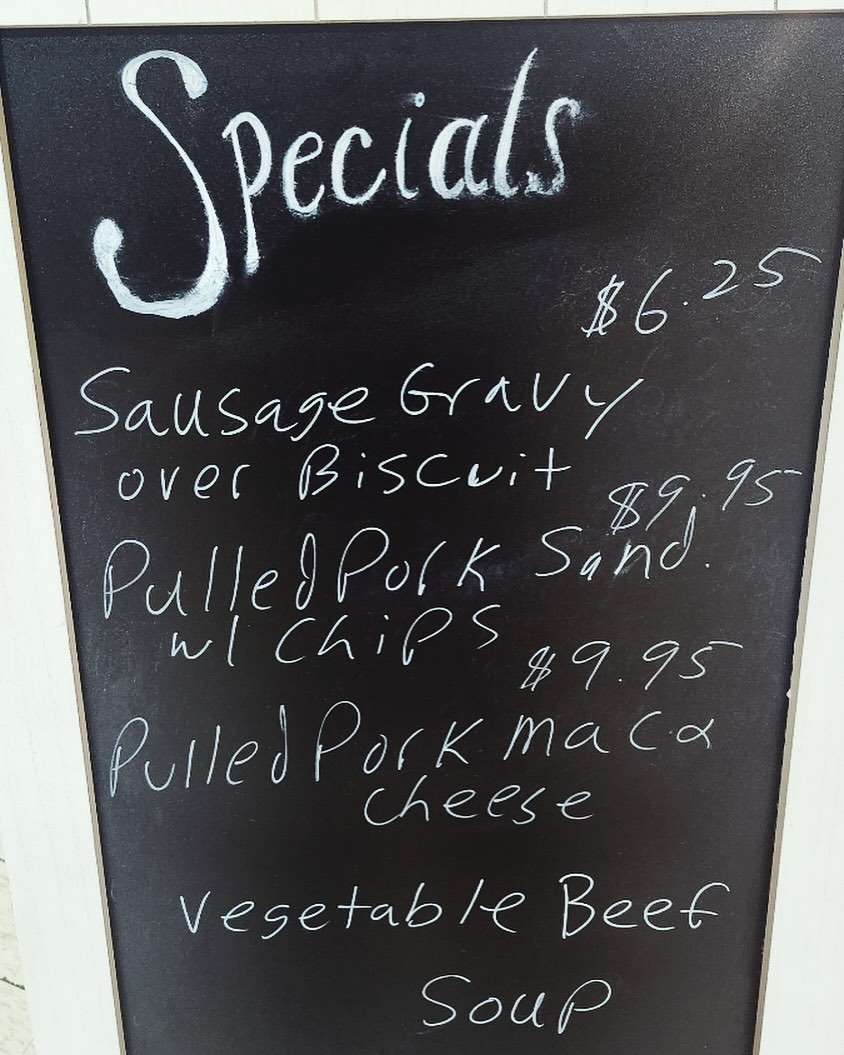 Specials
$6.25
Sausage Gravy
over Biscuit
$9.95
Pulled Pork Sand.
w/ Chips
$9.95
Pulled Pork mac &
cheese
Vegetable Beef
Soup